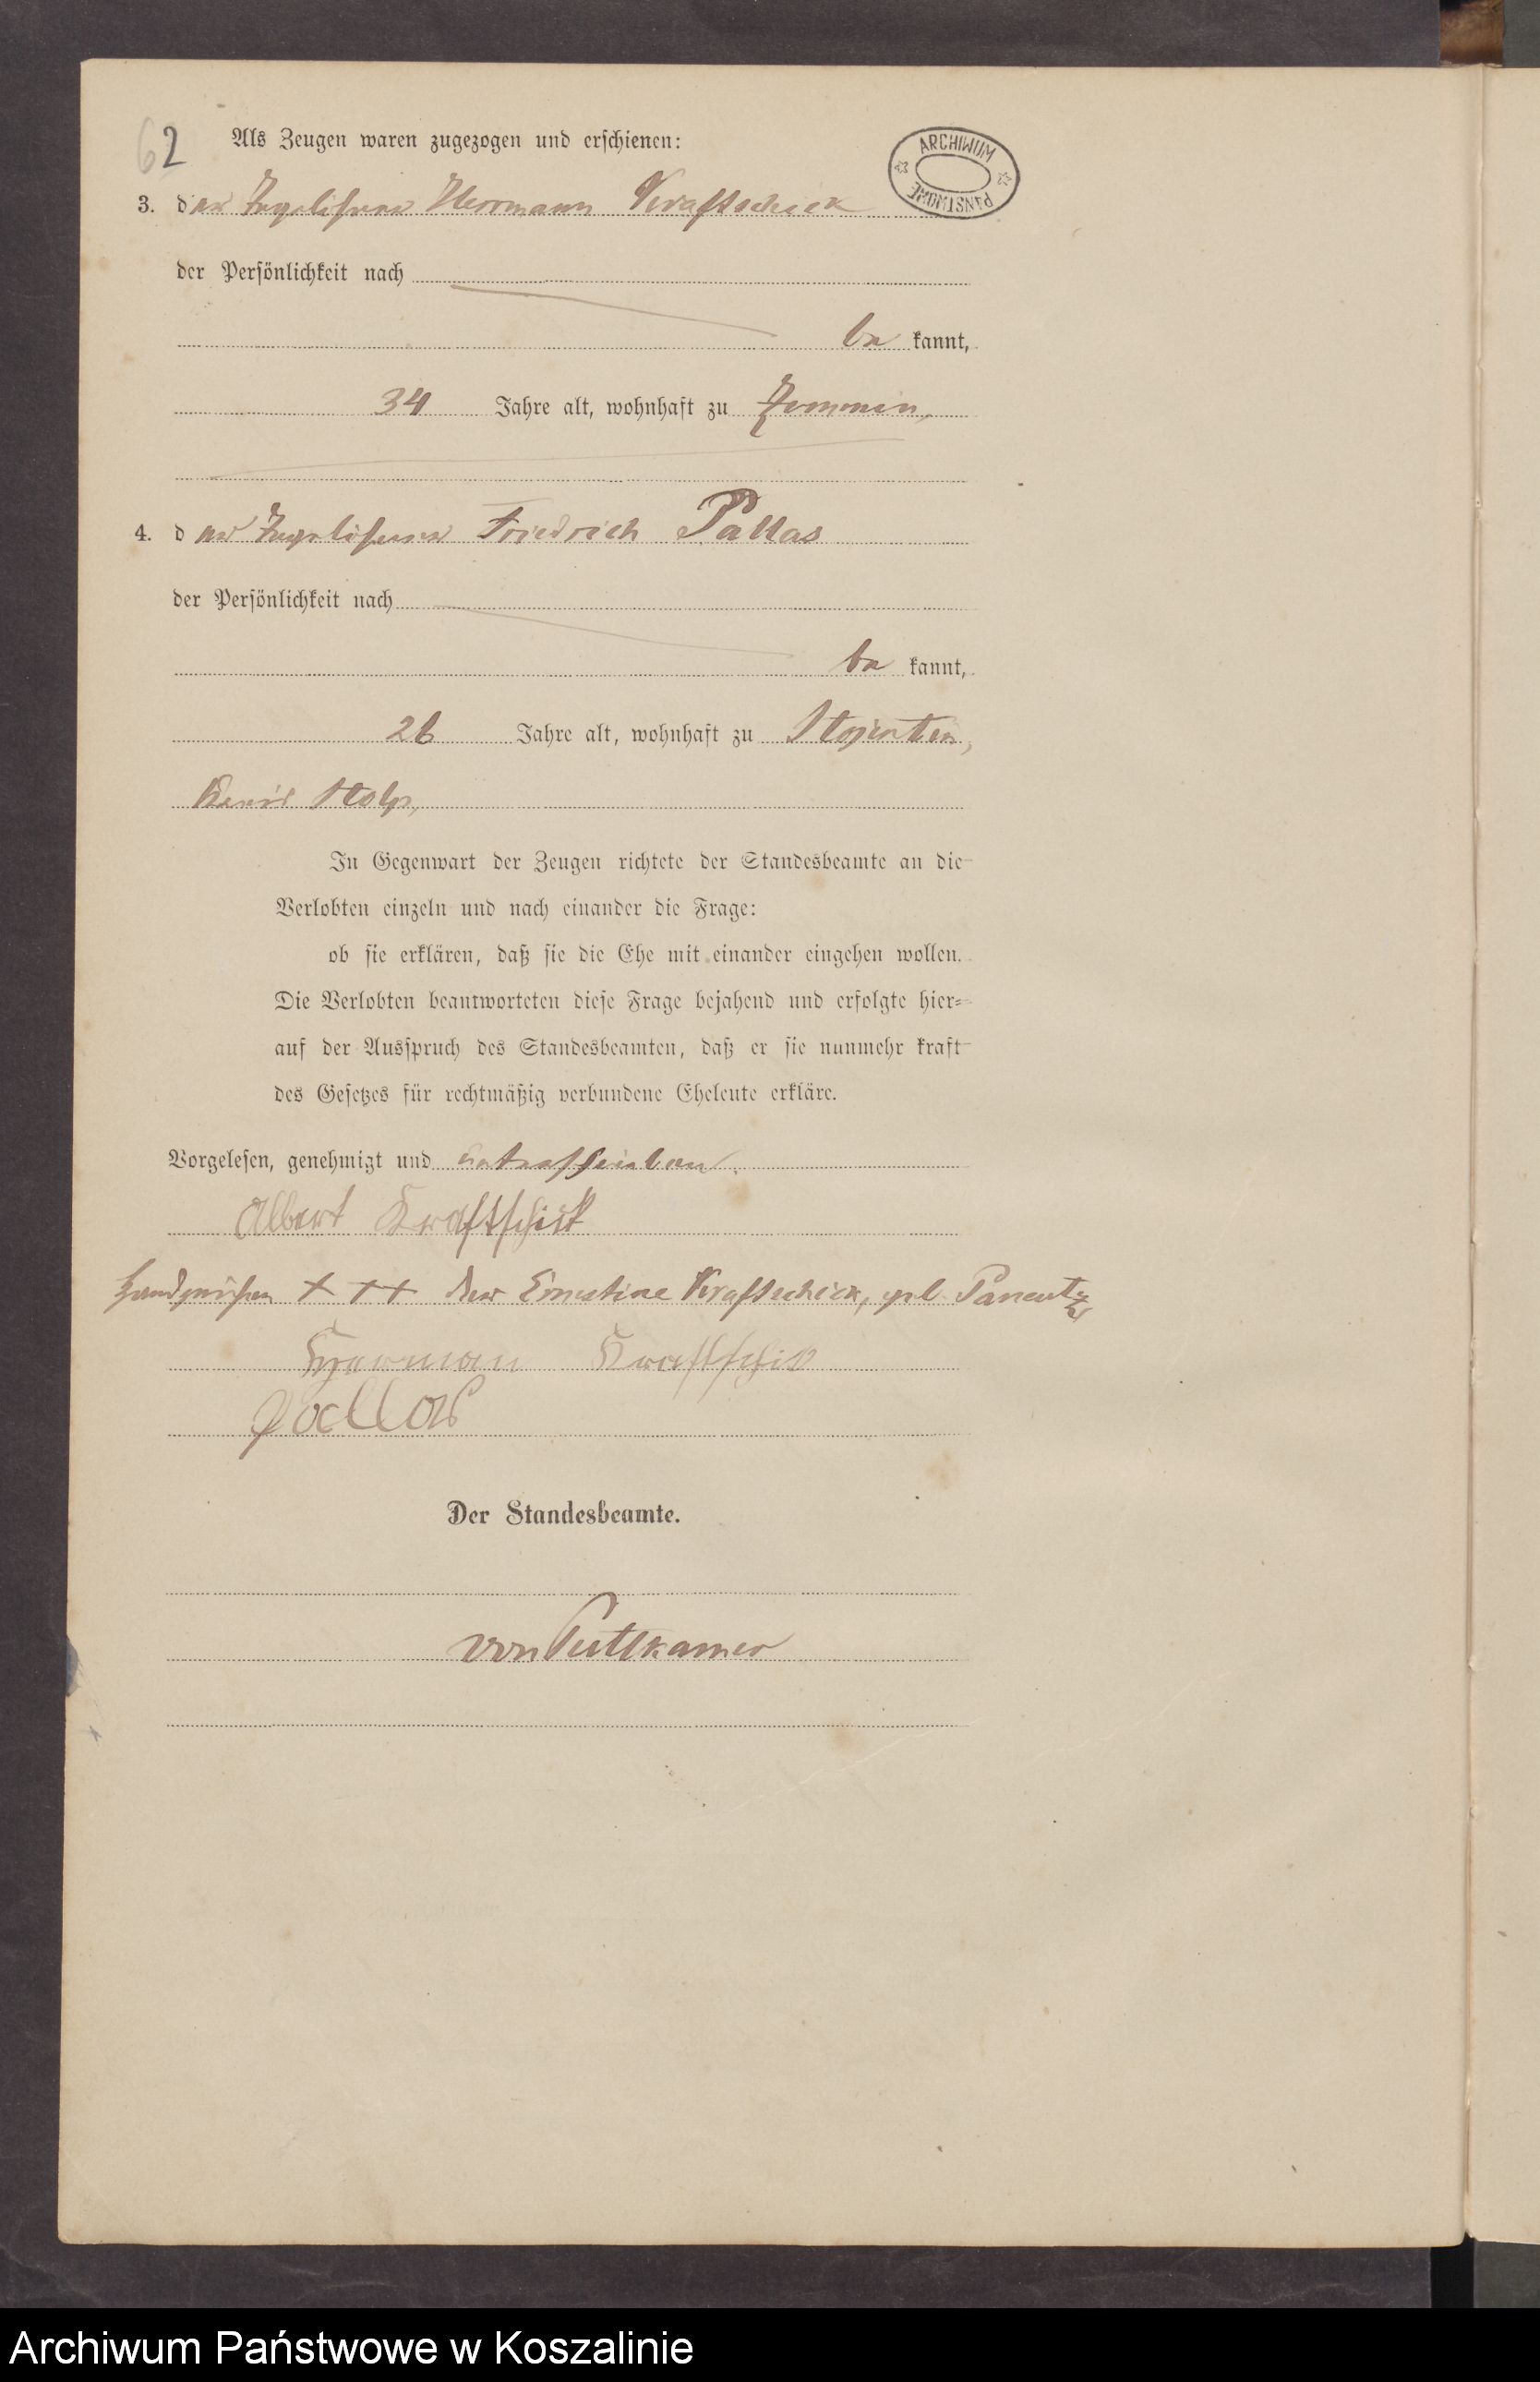 62 Als Zeugen waren zugezogen und erschienen:
ARCHIWUM PAŃSTWOWE
3. der Tagelöhner Herrmann Kraftschick
der Persönlichkeit nach
be kannt,
34 Jahre alt, wohnhaft zu Zemmin,
4. der Tagelöhner Friedrich Pallas
der Persönlichkeit nach
be kannt,
26 Jahre alt, wohnhaft zu Stojentin,
Kreis Stolp,
In Gegenwart der Zeugen richtete der Standesbeamte an die
Verlobten einzeln und nach einander die Frage:
ob sie erklären, daß sie die Ehe mit einander eingehen wollen.
Die Verlobten beantworteten diese Frage bejahend und erfolgte hier-
auf der Ausspruch des Standesbeamten, daß er sie nunmehr kraft
des Gesetzes für rechtmäßig verbundene Eheleute erkläre.
Vorgelesen, genehmigt und unterschrieben.
Albert Kraftschick
Handzeichen +++ der Ernestine Kraftschick, geb.
Herman Kraftschik
Pallas
Der Standesbeamte.
von Puttkamer
Archiwum Państwowe w Koszalinie